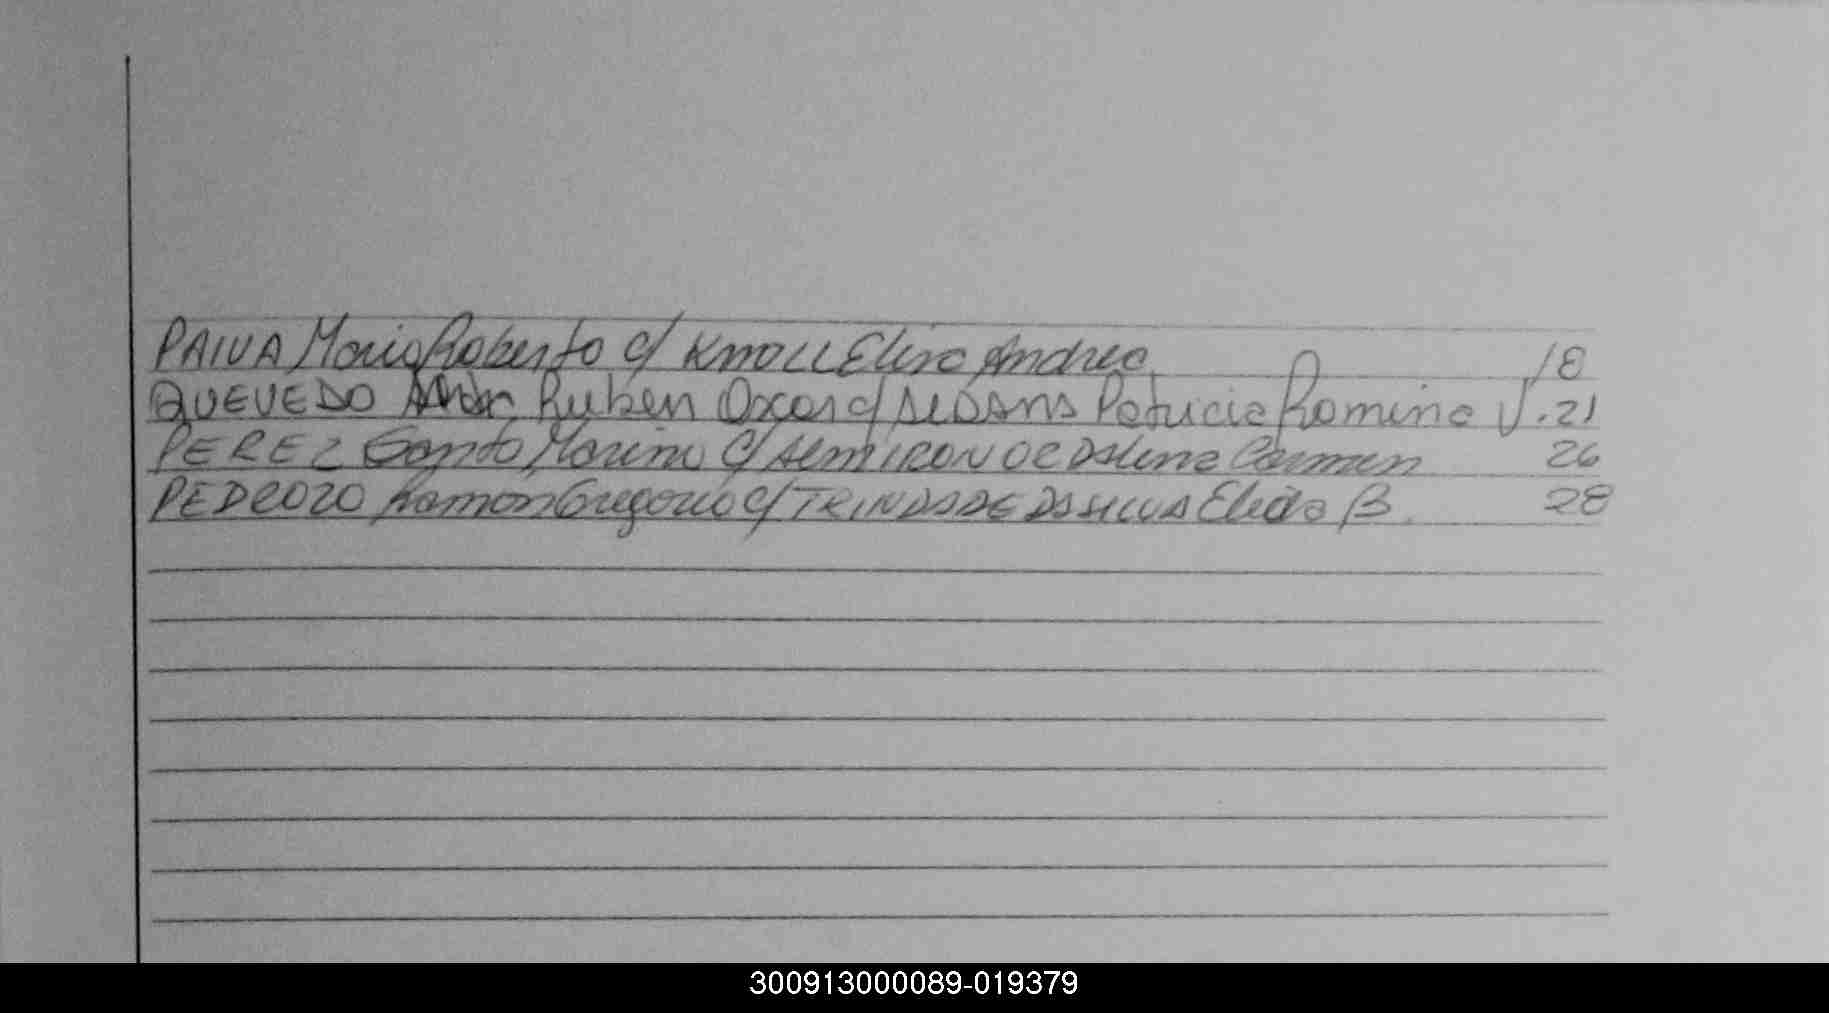 PAIVA Mario Roberto c/ KNOLL Elisa Andrea 18
QUEVEDO Ruben Oscar c/ Patricia Romina V. 21
PEREZ Marino c/ Carmen 26
PEDROZO Ramon Gregorio c/ TRINDADE DA SILVA Elida B. 28
300913000089-019379